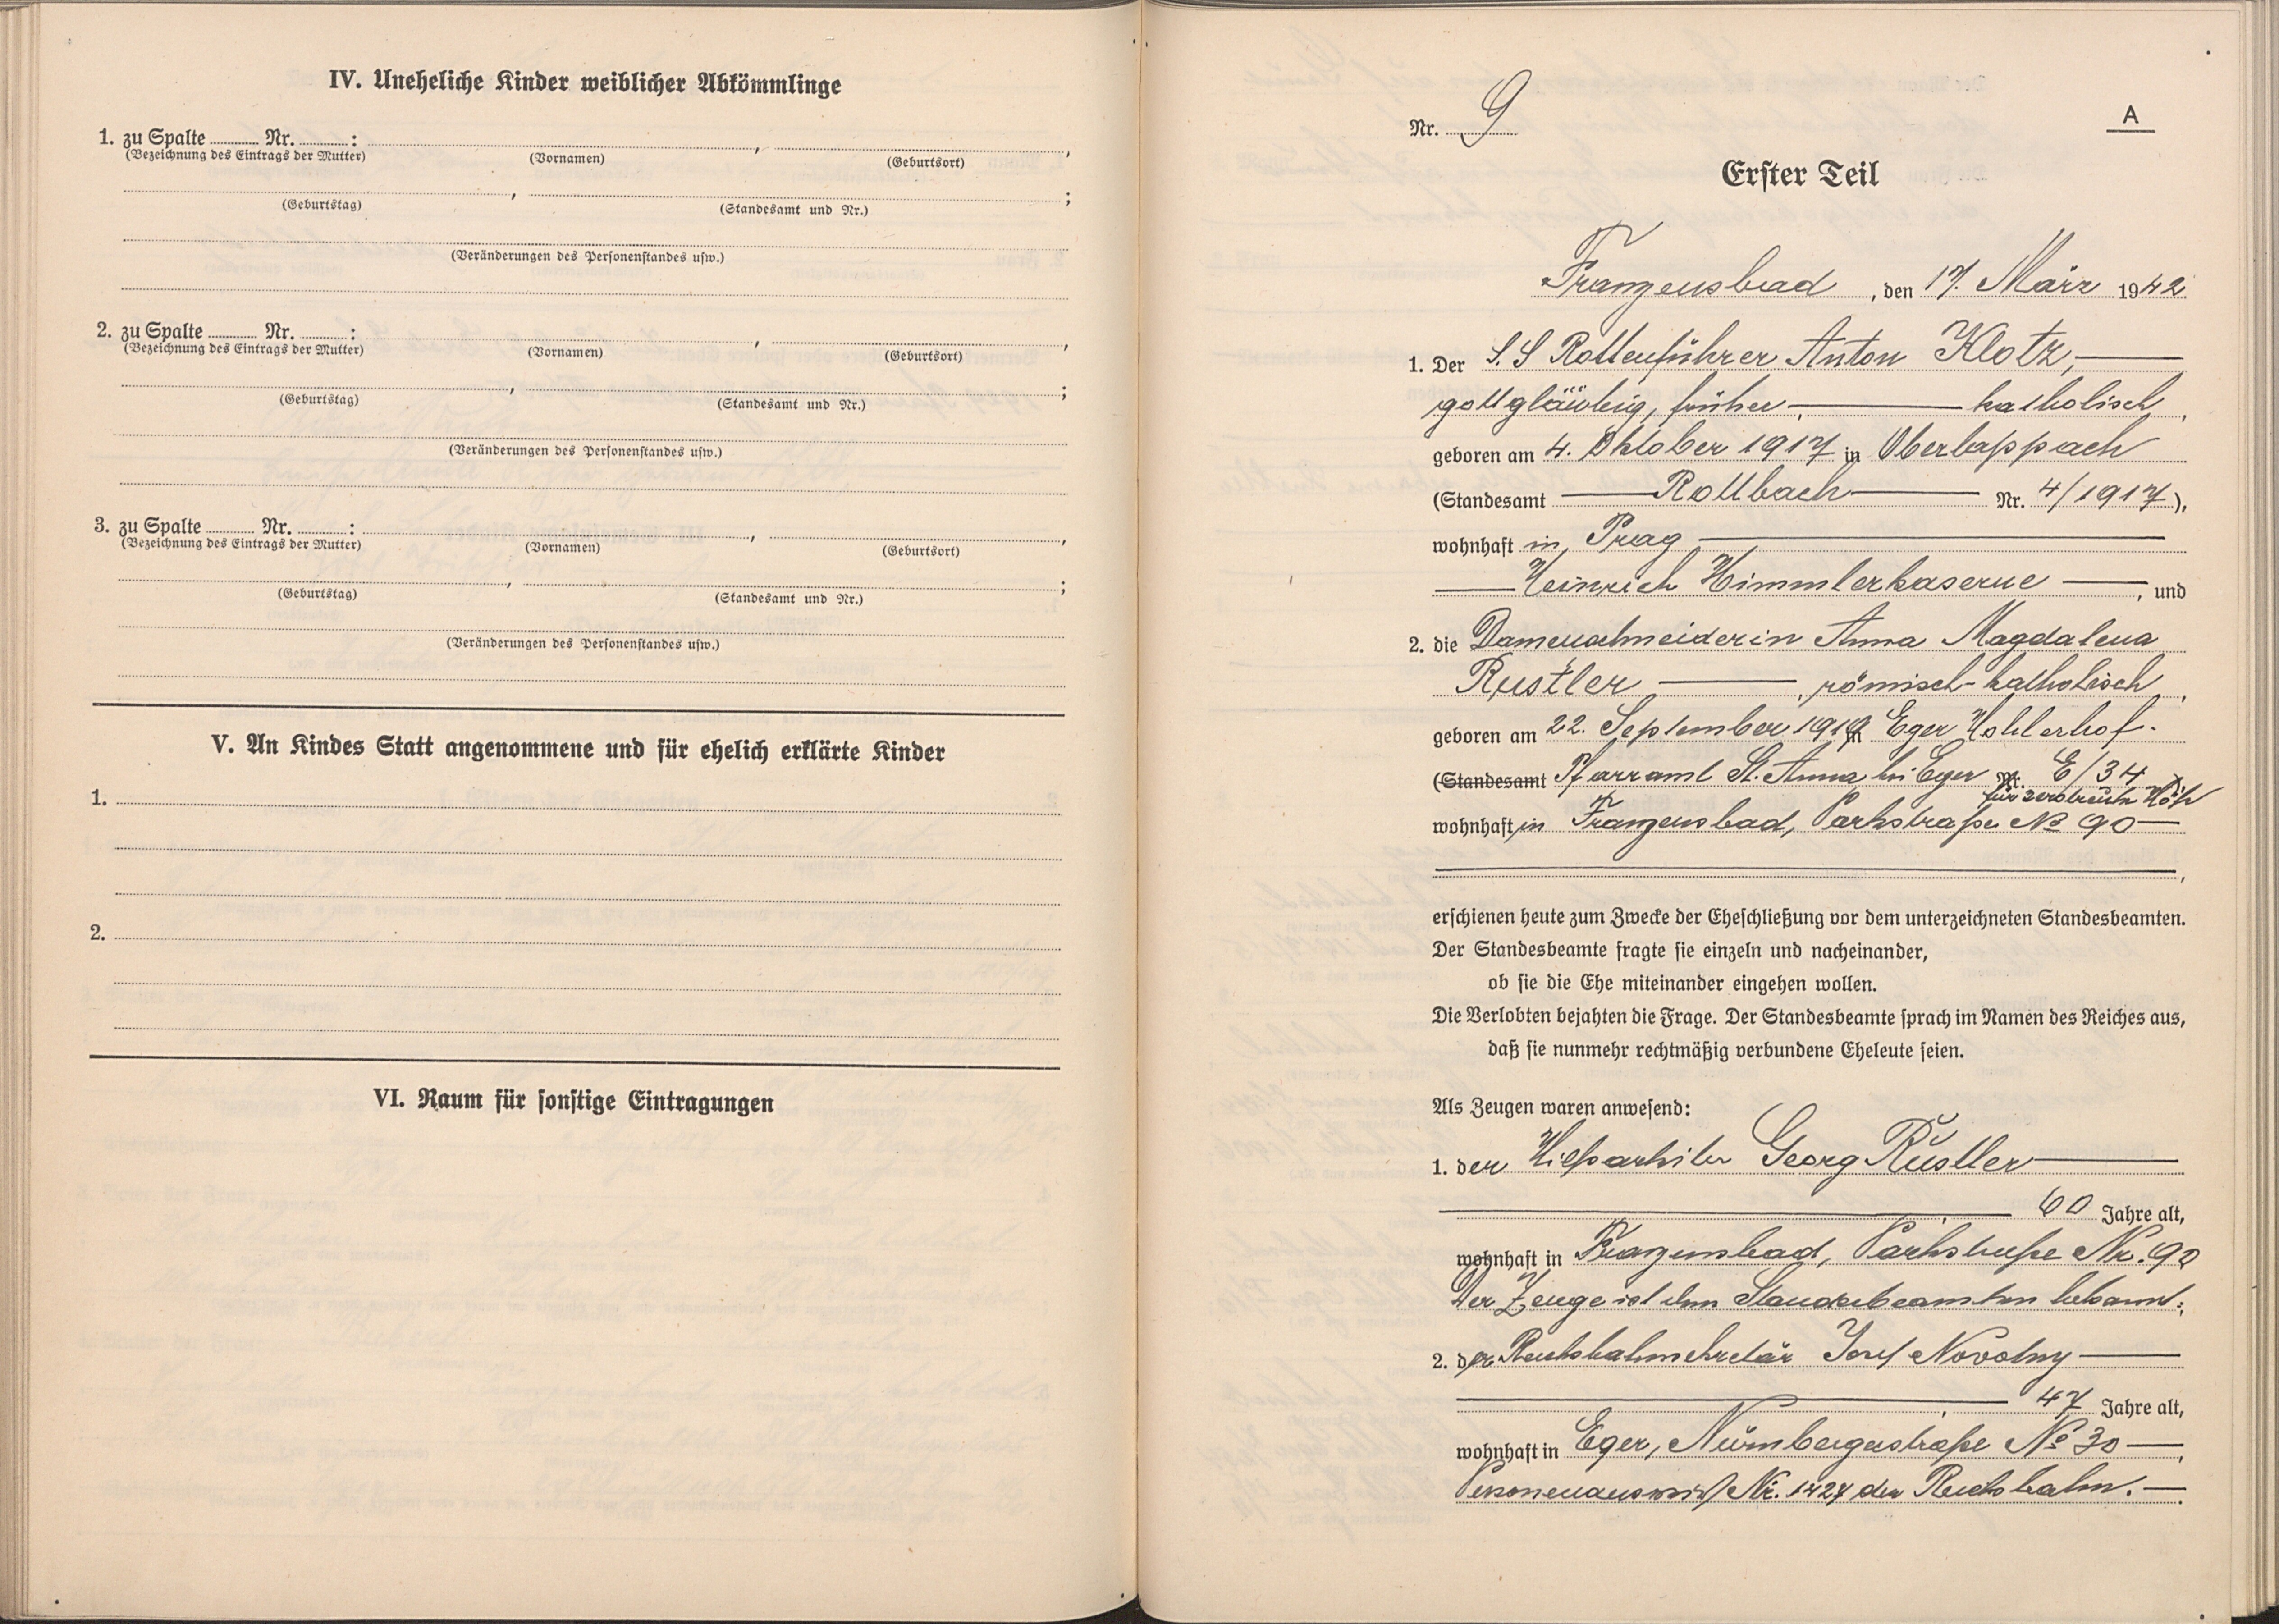 IV. Uneheliche Kinder weiblicher Abkömmlinge
1. zu Spalte ........ Nr. ........ :
(Bezeichnung des Eintrags der Mutter) (Vornamen) (Geburtsort)
(Geburtstag) (Standesamt und Nr.)
(Veränderungen des Personenstandes usw.)
2. zu Spalte ........ Nr. ........ :
(Bezeichnung des Eintrags der Mutter) (Vornamen) (Geburtsort)
(Geburtstag) (Standesamt und Nr.)
(Veränderungen des Personenstandes usw.)
3. zu Spalte ........ Nr. ........ :
(Bezeichnung des Eintrags der Mutter) (Vornamen) (Geburtsort)
(Geburtstag) (Standesamt und Nr.)
(Veränderungen des Personenstandes usw.)
V. An Kindes Statt angenommene und für ehelich erklärte Kinder
1.
2.
VI. Raum für sonstige Eintragungen
Nr. 9
A
Erster Teil
Franzensbad, den 17. März 1942
1. Der S.S Rottenführer Anton Klotz,
gottgläubig, früher katholisch,
geboren am 4. Oktober 1917 in Oberlappach
(Standesamt Rottbach Nr. 4/1917),
wohnhaft in Prag
Heinrich Himmlerkaserne, und
2. die Damenschneiderin Anna Magdalena
Rustler, römisch-katholisch,
geboren am 22. September 1919 in Eger
(Standesamt Pfarramt St. Anna bei Eger Nr. E/34
für zerstreute
wohnhaft in Franzensbad, Parkstraße No 90
erschienen heute zum Zwecke der Eheschließung vor dem unterzeichneten Standesbeamten.
Der Standesbeamte fragte sie einzeln und nacheinander,
ob sie die Ehe miteinander eingehen wollen.
Die Verlobten bejahten die Frage. Der Standesbeamte sprach im Namen des Reiches aus,
daß sie nunmehr rechtmäßig verbundene Eheleute seien.
Als Zeugen waren anwesend:
1. der Georg Rustler
60 Jahre alt,
wohnhaft in Franzensbad, Parkstraße Nr. 90
Der Zeuge ist dem Standesbeamten bekannt;
2. der Reichsbahnsekretär Josef Novotny
47 Jahre alt,
wohnhaft in Eger, Nürnbergerstraße No 30
Personenausweis Nr. 1427 der Reichsbahn.